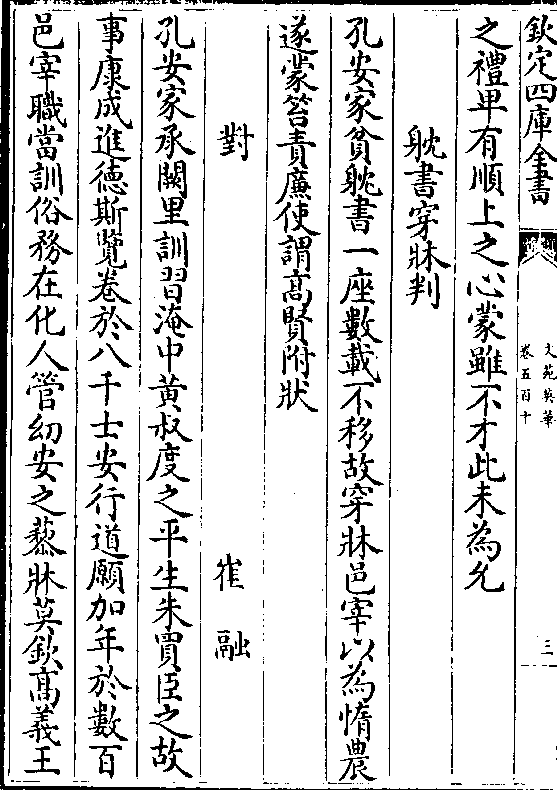 欽定四庫全書
文苑英華
卷五百十
三
之禮卑有順上之心蒙雖不才此未為允
躭書穿牀判
孔安家貧躭書一座數載不移故穿牀邑宰以為惰農
遂蒙笞責廉使謂高賢附狀
對
崔融
孔安家承闕里訓習淹中黄叔度之平生朱買臣之故
事康成進德斯覽卷於八千士安行道願加年於數百
邑宰職當訓俗務在化人管幼安之藜牀莫欽高義王